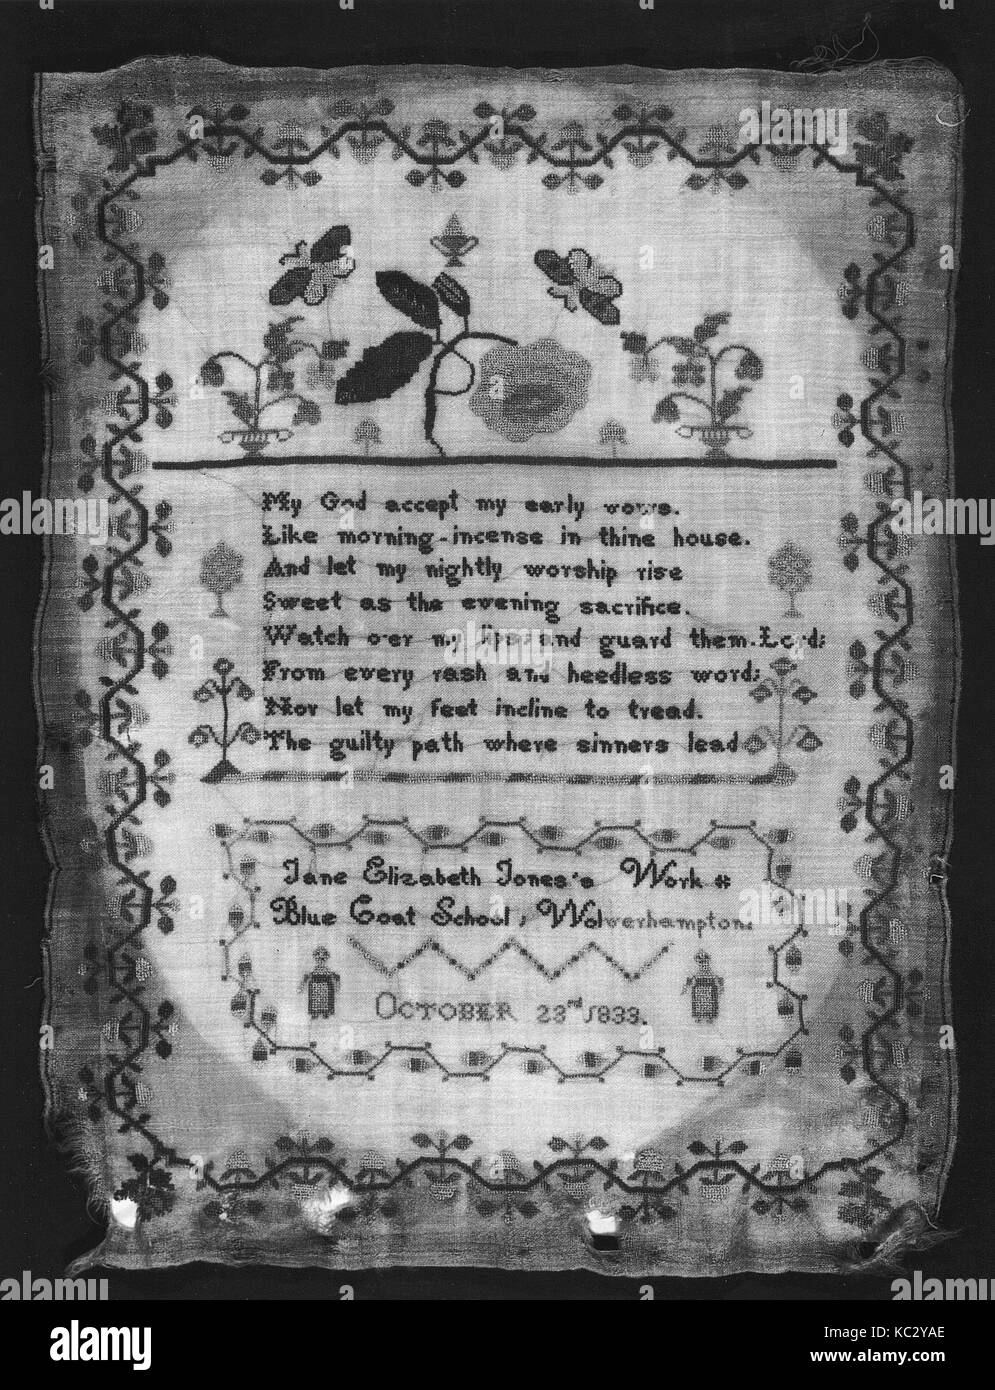 My God accept my early vows.
Like morning-incense in thine house.
And let my nightly worship rise
Sweet as the evening sacrifice.
Watch o'er my lips and guard them. Lord;
From every rash and heedless word;
Nor let my feet incline to tread.
The guilty path where sinners lead
Jane Elizabeth Jones's Work
Blue Coat School, Wolverhampton.
OCTOBER 23rd 1833.
alamy stock photo
KC2YAE
www.alamy.com